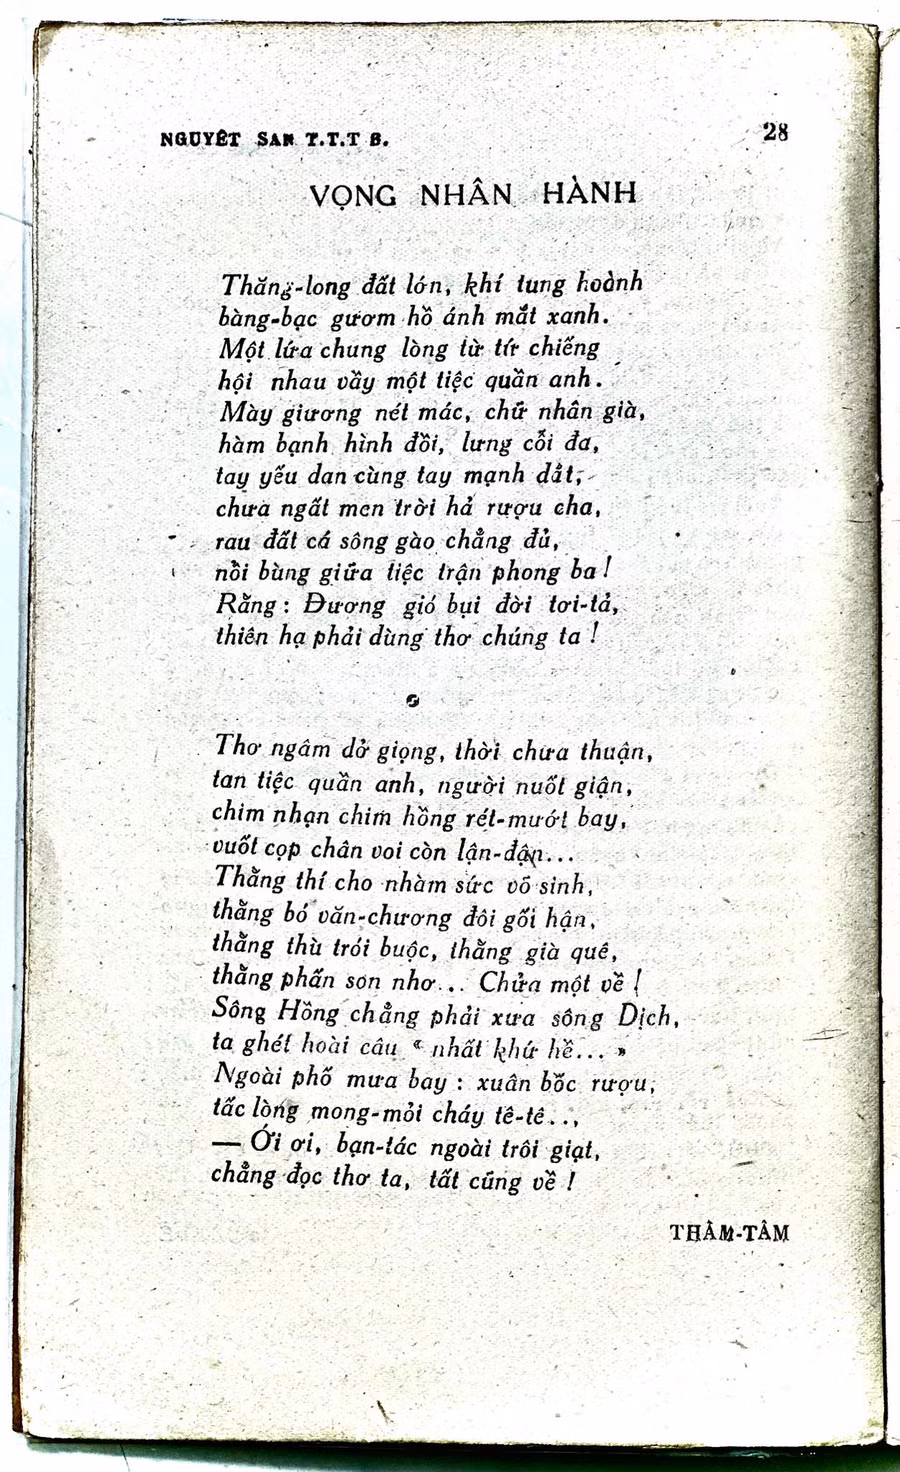 NGUYÊT SAN T.T.T B.
28
VỌNG NHÂN HÀNH
Thăng-long đất lớn, khí tung hoành
bàng-bạc gươm hồ ánh mắt xanh.
Một lứa chung lòng từ tứ chiếng
hội nhau vầy một tiệc quần anh.
Mày giương nét mác, chữ nhân già,
hàm bạnh hình đồi, lưng cỗi đa,
tay yếu dan cùng tay mạnh dắt,
chưa ngất men trời hả rượu cha,
rau đất cá sông gào chẳng đủ,
nổi bùng giữa tiệc trận phong ba!
Rằng: Đương gió bụi đời tơi-tả,
thiên hạ phải dùng thơ chúng ta!
Thơ ngâm dở giọng, thời chưa thuận,
tan tiệc quần anh, người nuốt giận,
chim nhạn chim hồng rét-mướt bay,
vuốt cọp chân voi còn lận-đận...
Thằng thí cho nhàm sức võ sinh,
thằng bó văn-chương đôi gối hận,
thằng thù trói buộc, thằng già quê,
thằng phấn son nhơ... Chửa một về!
Sông Hồng chẳng phải xưa sông Dịch,
ta ghét hoài câu « nhất khứ hề... »
Ngoài phố mưa bay: xuân bốc rượu,
tấc lòng mong-mỏi cháy tê-tê...,
— Ới ơi, bạn-tác ngoài trôi giạt,
chẳng đọc thơ ta, tất cũng về!
THÂM-TÂM